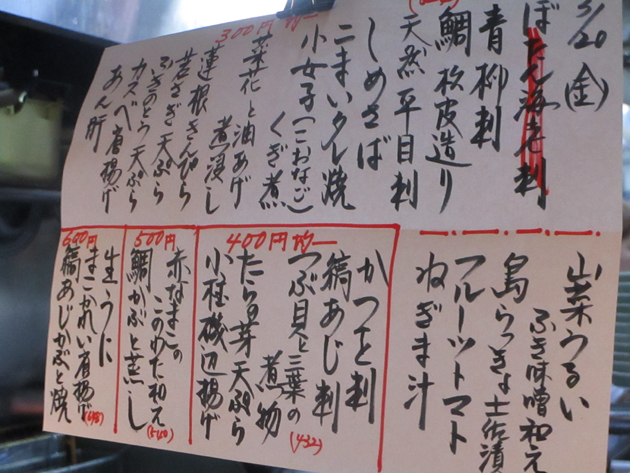 3/20(金)
ぼたん海老刺
青柳刺
鯛松皮造り
天然平目刺
しめさば
こまいタレ焼
小女子(こおなご)
くぎ煮
300円均一
菜花と油あげ
煮浸し
蓮根きんぴら
若さぎ天ぷら
ふきのとう天ぷら
カスベ唐揚げ
あん肝
山菜うるい
ふき味噌和え
島らっきょ土佐漬
フルーツトマト
ねぎま汁
400円均一
かつを刺
縞あじ刺
つぶ貝と三葉の
煮物
(432)
たらの芽天ぷら
小柱磯辺揚げ
500円
赤なまこの
このわた和え
鯛かぶと蒸し
(540)
600円
生うに
まこかれい唐揚げ
縞あじかぶと焼
(648)